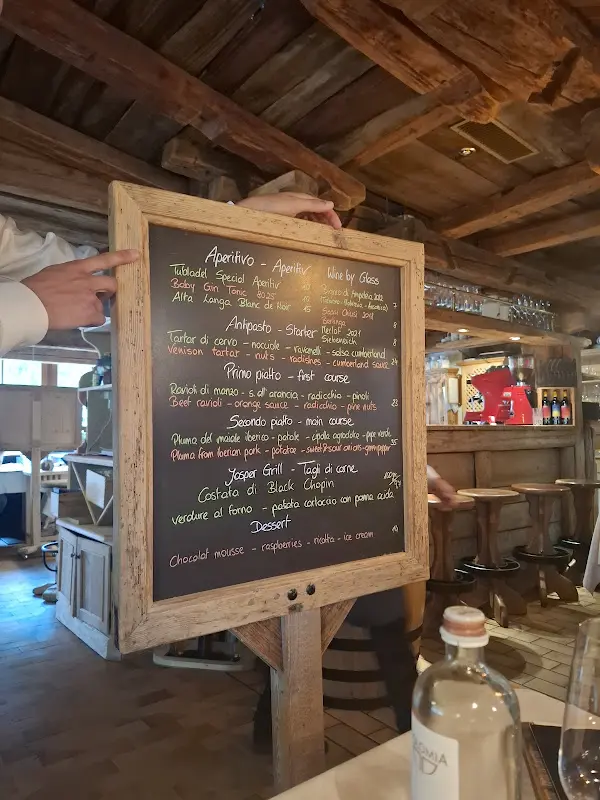 Aperitivo - Aperitiv
Wine by Glass
Tubladel Special Aperitiv
Baby Gin Tonic
Alta Langa Blanc de Noir
7
Merlot 2021
Siebeneich
8
8
Antipasto - Starter
Tartar di cervo - nocciole - ravanelli - salsa cumberland
Venison tartar - nuts - radishes - cumberland sauce 24
Primo piatto - first course
Ravioli di manzo - s. all'arancia - radicchio - pinoli
Beef ravioli - orange sauce - radicchio - pine nuts 23
Secondo piatto - main course
Pluma del maiale iberico - patate - cipolla agrodolce - pepe verde
Pluma from Iberian pork - potatoe - sweet&sour onions - green pepper 35
Jasper Grill - Tagli di carne
Costata di Black Chopin
verdure al forno - patata cartoccio con panna acida
Dessert
Chocolat mousse - raspberries - ricotta - ice cream